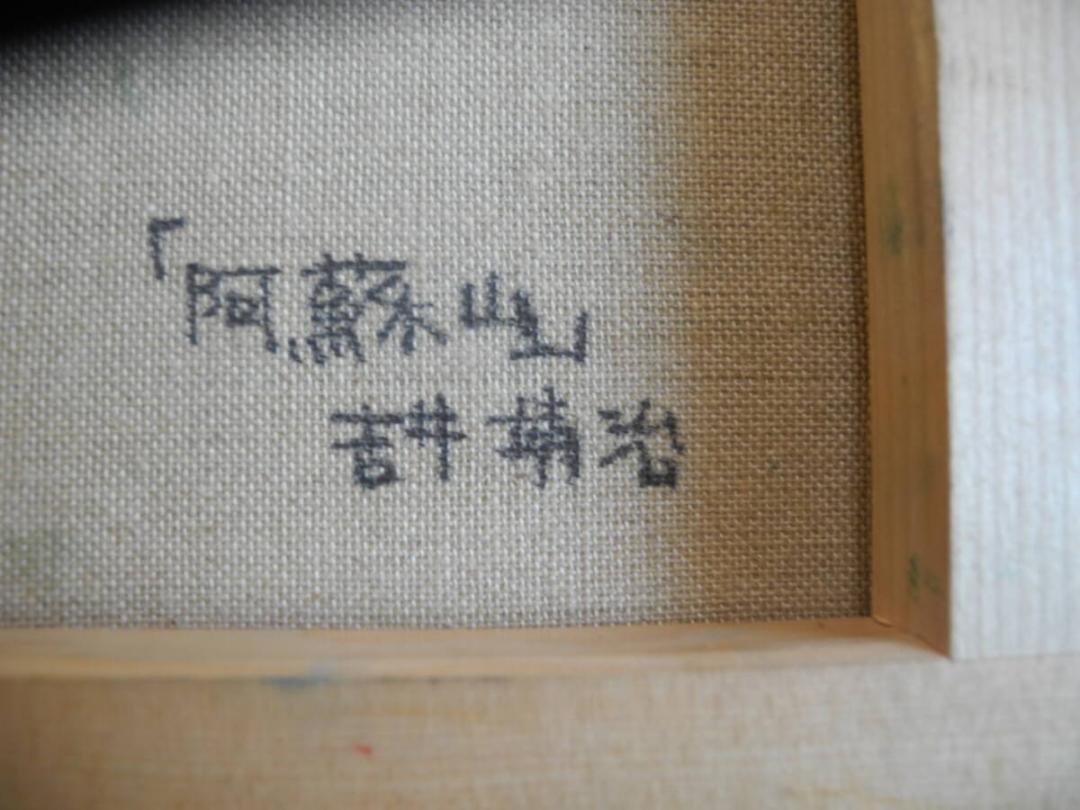 「阿蘇山」
吉井靖治